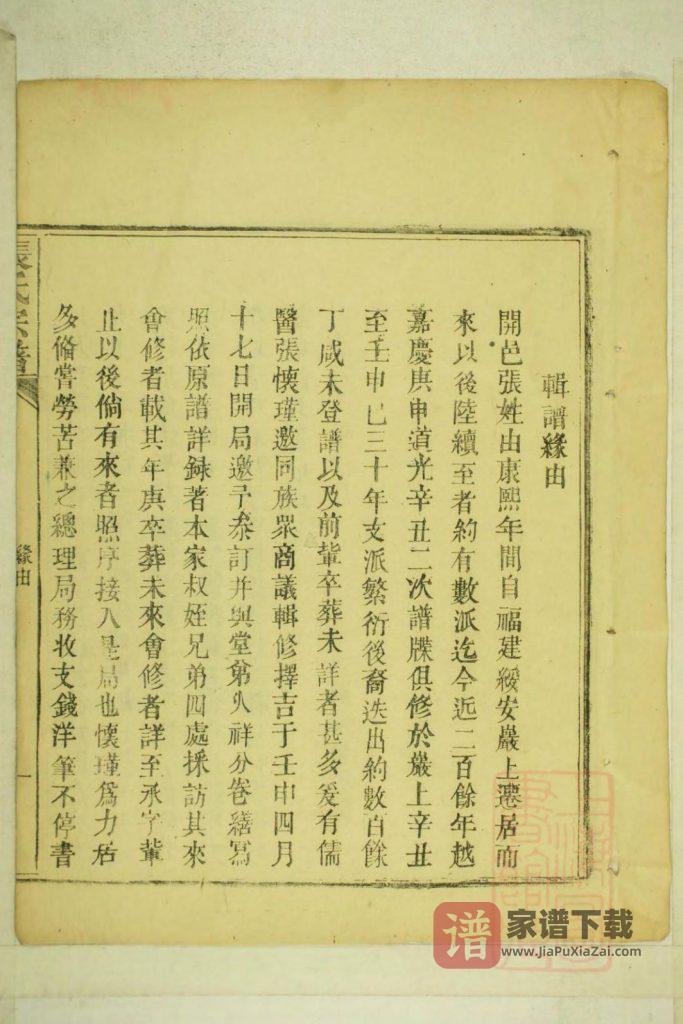 輯譜緣由
開邑張姓由康熙年間自福建綏安巖上遷居而
來以後陸續至者約有數派迄今近二百餘年越
嘉慶庚申道光辛丑二次譜牒俱修於巖上辛丑
至壬申已三十年支派繁衍後裔迭出約數百餘
丁咸未登譜以及前輩卒葬未詳者甚多爰有儒
醫張懷瑾邀同族眾商議輯修擇吉于壬申四月
十七日開局邀予叅訂并與堂弟 祥分卷繕寫
照依原譜詳録著本家叔姪兄弟四處採訪其來
會修者載其年庚卒葬未來會修者詳至承字輩
止以後倘有來者照序接入是局也懷瑾爲力居
多脩嘗勞苦兼之總理局務收支錢洋筆不停書
張氏宗譜
緣由
一
谱
家谱下载
www.JiaPuXiaZai.com